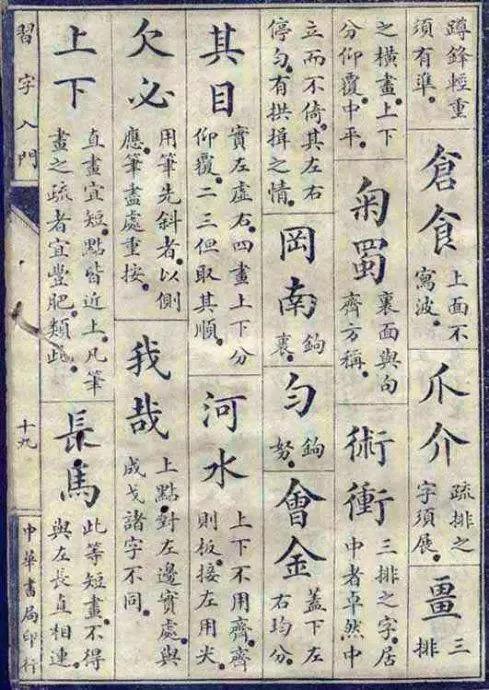 蹲鋒輕重
須有準。
倉食
上面不
寫波。
爪介
疏排之
字須展。
畺
三
排
之橫畫。上下
分仰覆。中平。
菊蜀
裏面與勾
齊方稱。
術衝
三排之字。居
中者卓然中
立而不倚。其左右
停勻。有拱揖之情。
岡南
鉤
裏。
勻
鉤
努。
會金
蓋下左
右均分。
其目
實左虛右。四畫上下分
仰覆。二三但取其順。
河水
上下不用齊。齊
則板。接左用尖。
欠必
用筆先斜者。以側
應。筆盡處重按。
我哉
上點對左邊實處。與
成戈諸字不同。
上下
直畫宜短。點皆近上。凡筆
畫之疏者宜豐肥。類此。
長馬
此等短畫。不得
與左長直相連。
習字入門
十九
中華書局印行